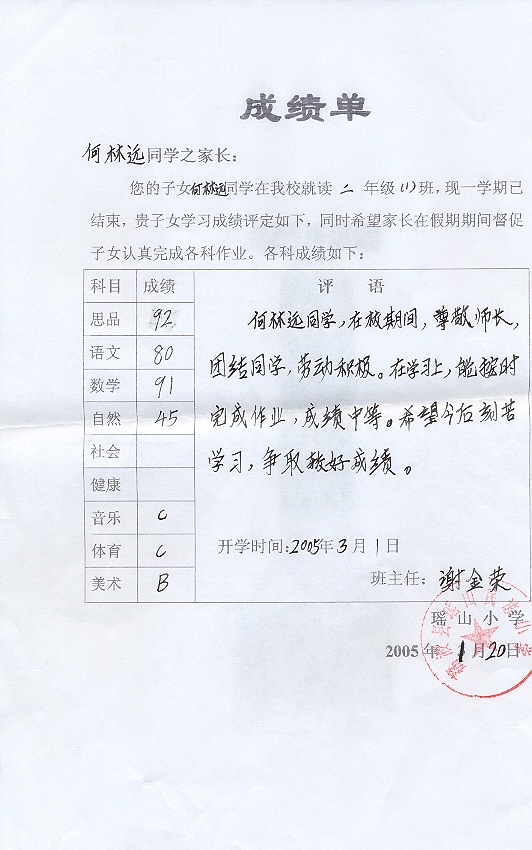 成绩单
何林远同学之家长：
您的子女何林远同学在我校就读 二 年级(1)班，现一学期已
结束，贵子女学习成绩评定如下，同时希望家长在假期期间督促
子女认真完成各科作业。各科成绩如下：
科目 成绩 评 语
思品 92
语文 80
数学 91
自然 45
社会
健康
音乐 C
体育 C
美术 B
何林远同学，在放期间，尊敬师长，
团结同学，劳动积极。在学习上，能按时
完成作业，成绩中等。希望今后刻苦
学习，争取较好成绩。
开学时间：2005年3月1日
班主任：谢金荣
瑶山小学
2005年1月20日